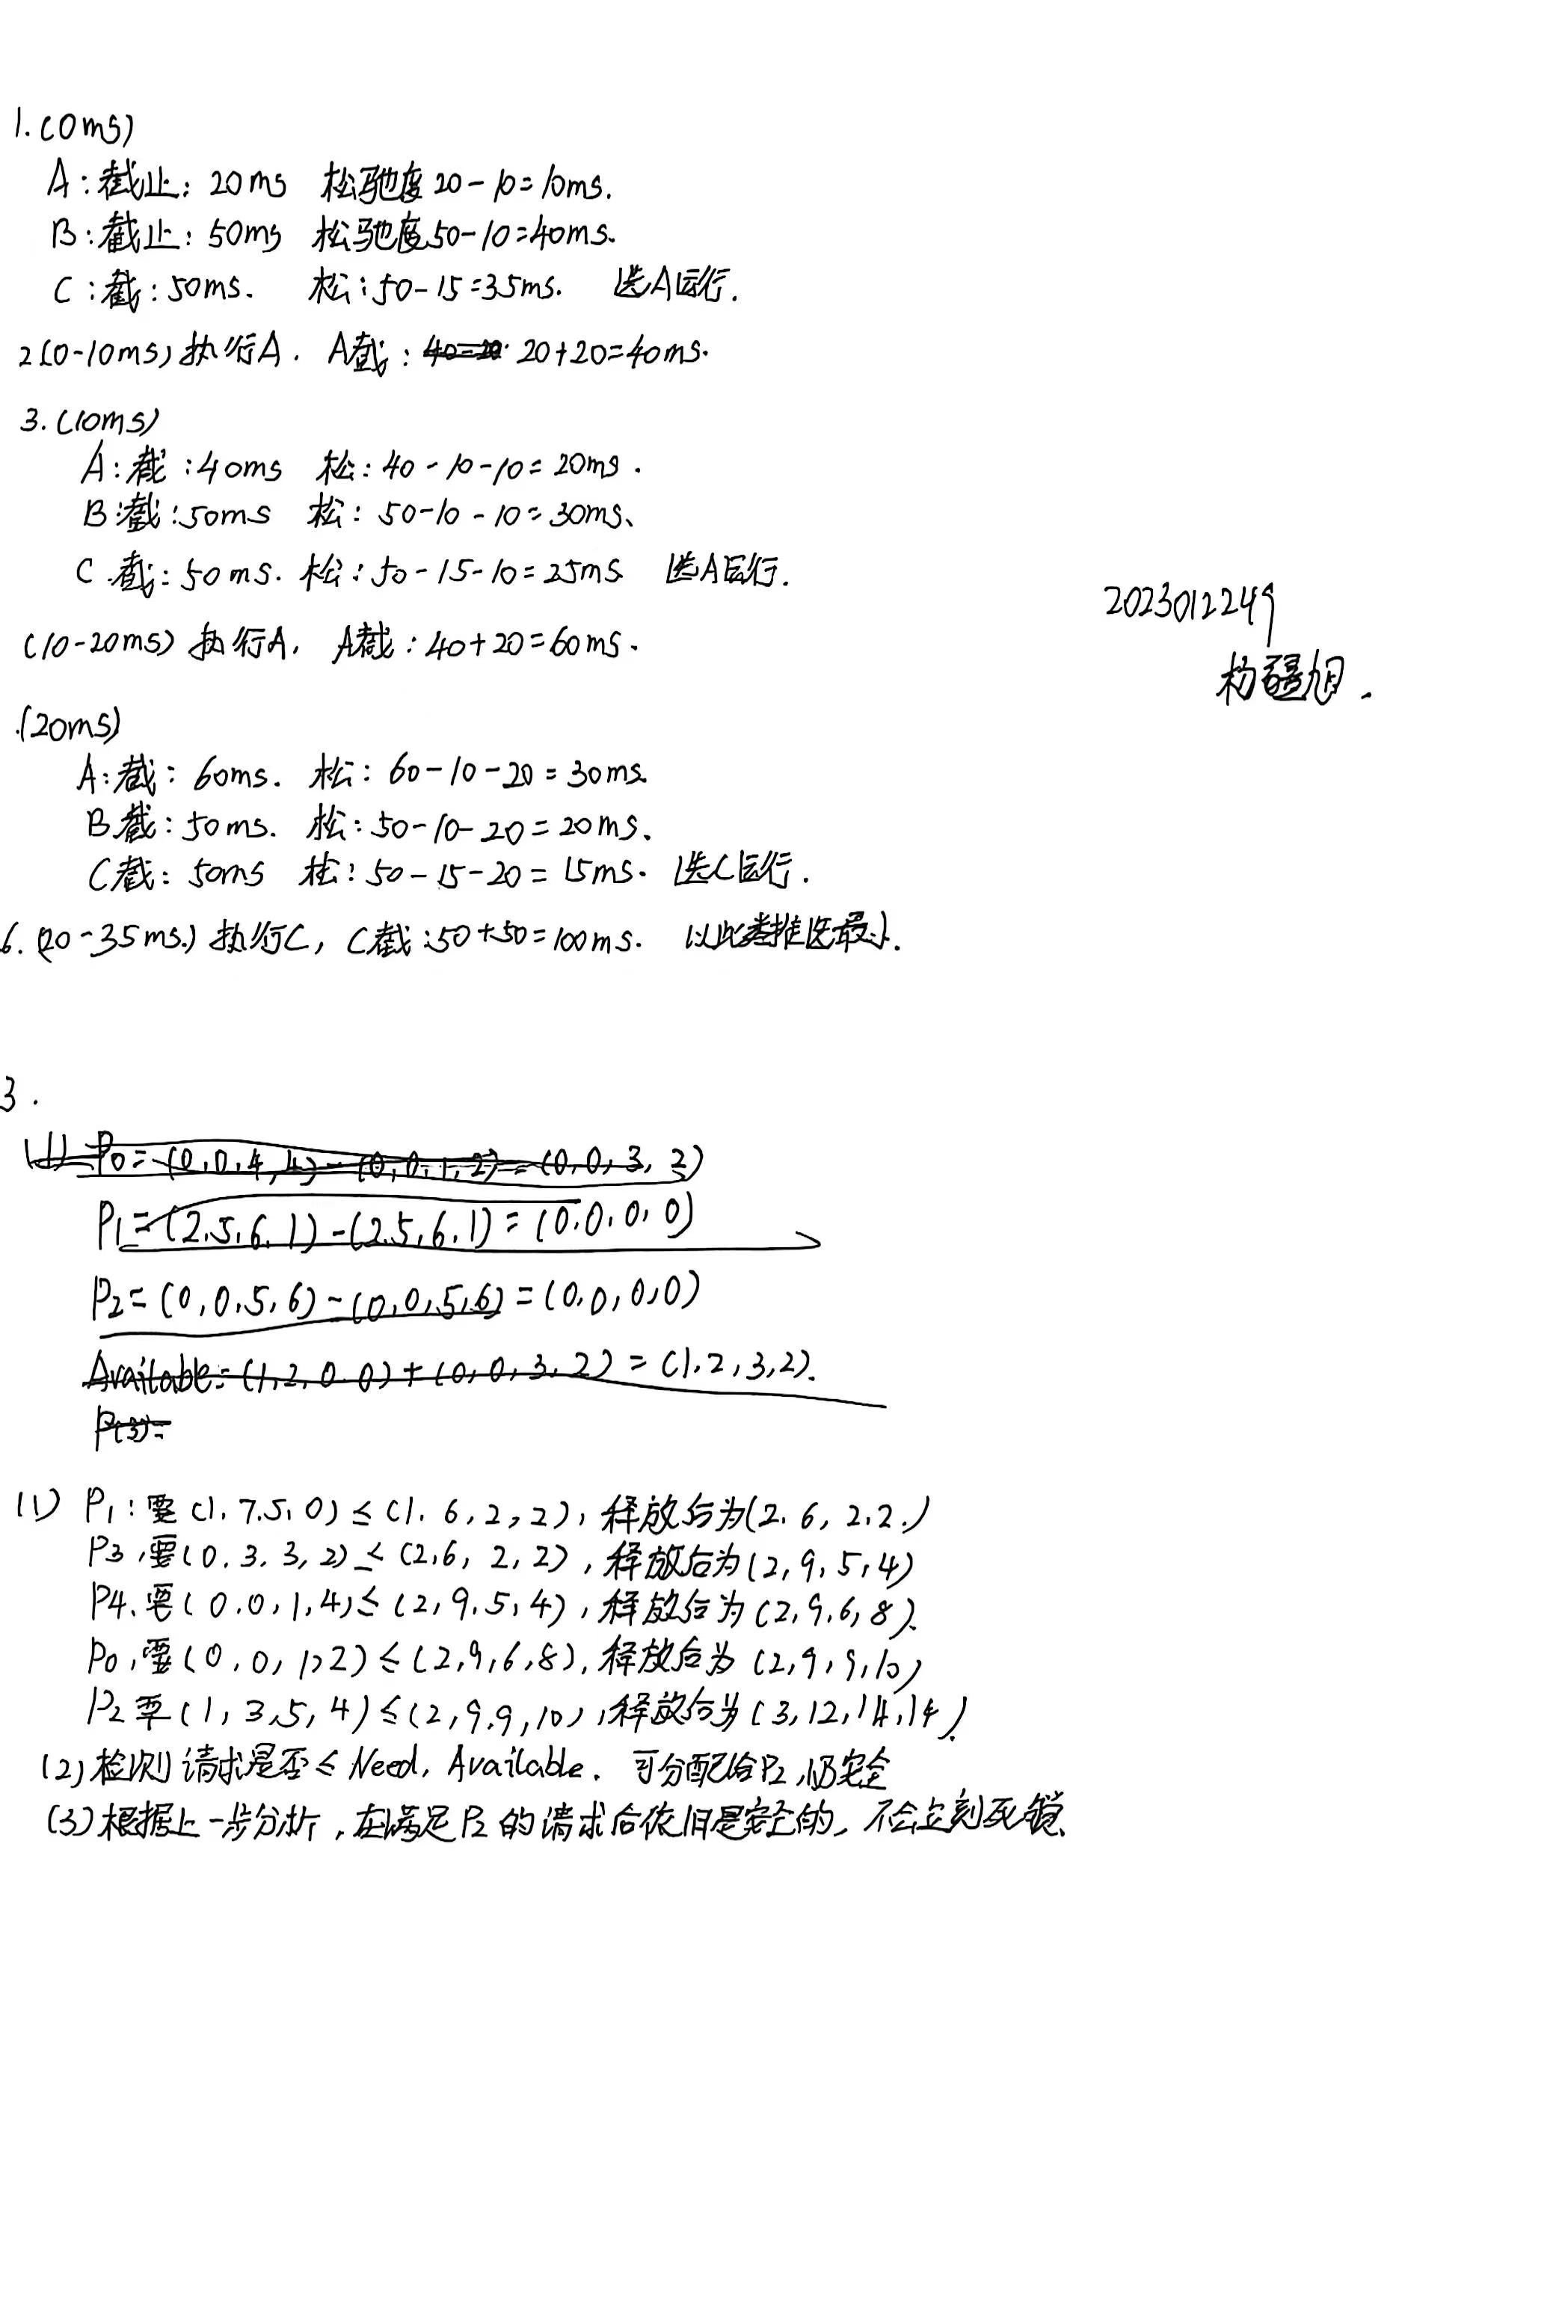 1.(0ms)
A:截止: 20ms 松驰度20-10=10ms.
B:截止: 50ms 松驰度50-10=40ms.
C:截: 50ms. 松:50-15=35ms. 选A运行.
2(0-10ms)执行A. A截: 40=20 20+20=40ms.
3.(10ms)
A:截:40ms 松:40-10-10=20ms.
B:截:50ms 松: 50-10-10=30ms、
C.截:50ms. 松:50-15-10=25ms 选A运行.
(10-20ms)执行A, A截:40+20=60ms.
2023012249
.(20ms)
A:截: 60ms. 松: 60-10-20=30ms.
B截:50ms. 松:50-10-20=20ms、
C截: 50ms 松:50-15-20=15ms. 选C运行.
6.(20-35ms.)执行C, C截:50+50=100ms. 以此类推选最小.
3.
(1) P0=(0,0,4,4)-(0,0,1,2)=(0,0,3,2)
P1=(2.5.6.1)-(2.5.6.1)=(0.0.0.0)
P2=(0,0.5,6)-(0,0,5,6)=(0.0,0,0)
Available=(1,2,0.0)+(0,0,3,2)=(1.2,3,2).
P(3)=
(1) P1:要(1.7.5.0)≤(1.6,2,2),释放后为(2.6,2.2.)
P3,要(0.3.3,2)≤(2,6,2,2),释放后为(2,9,5,4)
P4、要(0.0,1,4)≤(2,9.5,4),释放后为(2,9.6,8)、
P0,要(0,0,1,2)≤(2,9,6,8),释放后为(2,9,9,10)
P2要(1,3,5,4)≤(2,9.9,10),释放后为(3,12,14,14)、
(2)检测请求是否≤Need, Available. 可分配给P2,仍安全
(3)根据上一步分析,在满足P2的请求后依旧是安全的,不会立刻死锁、